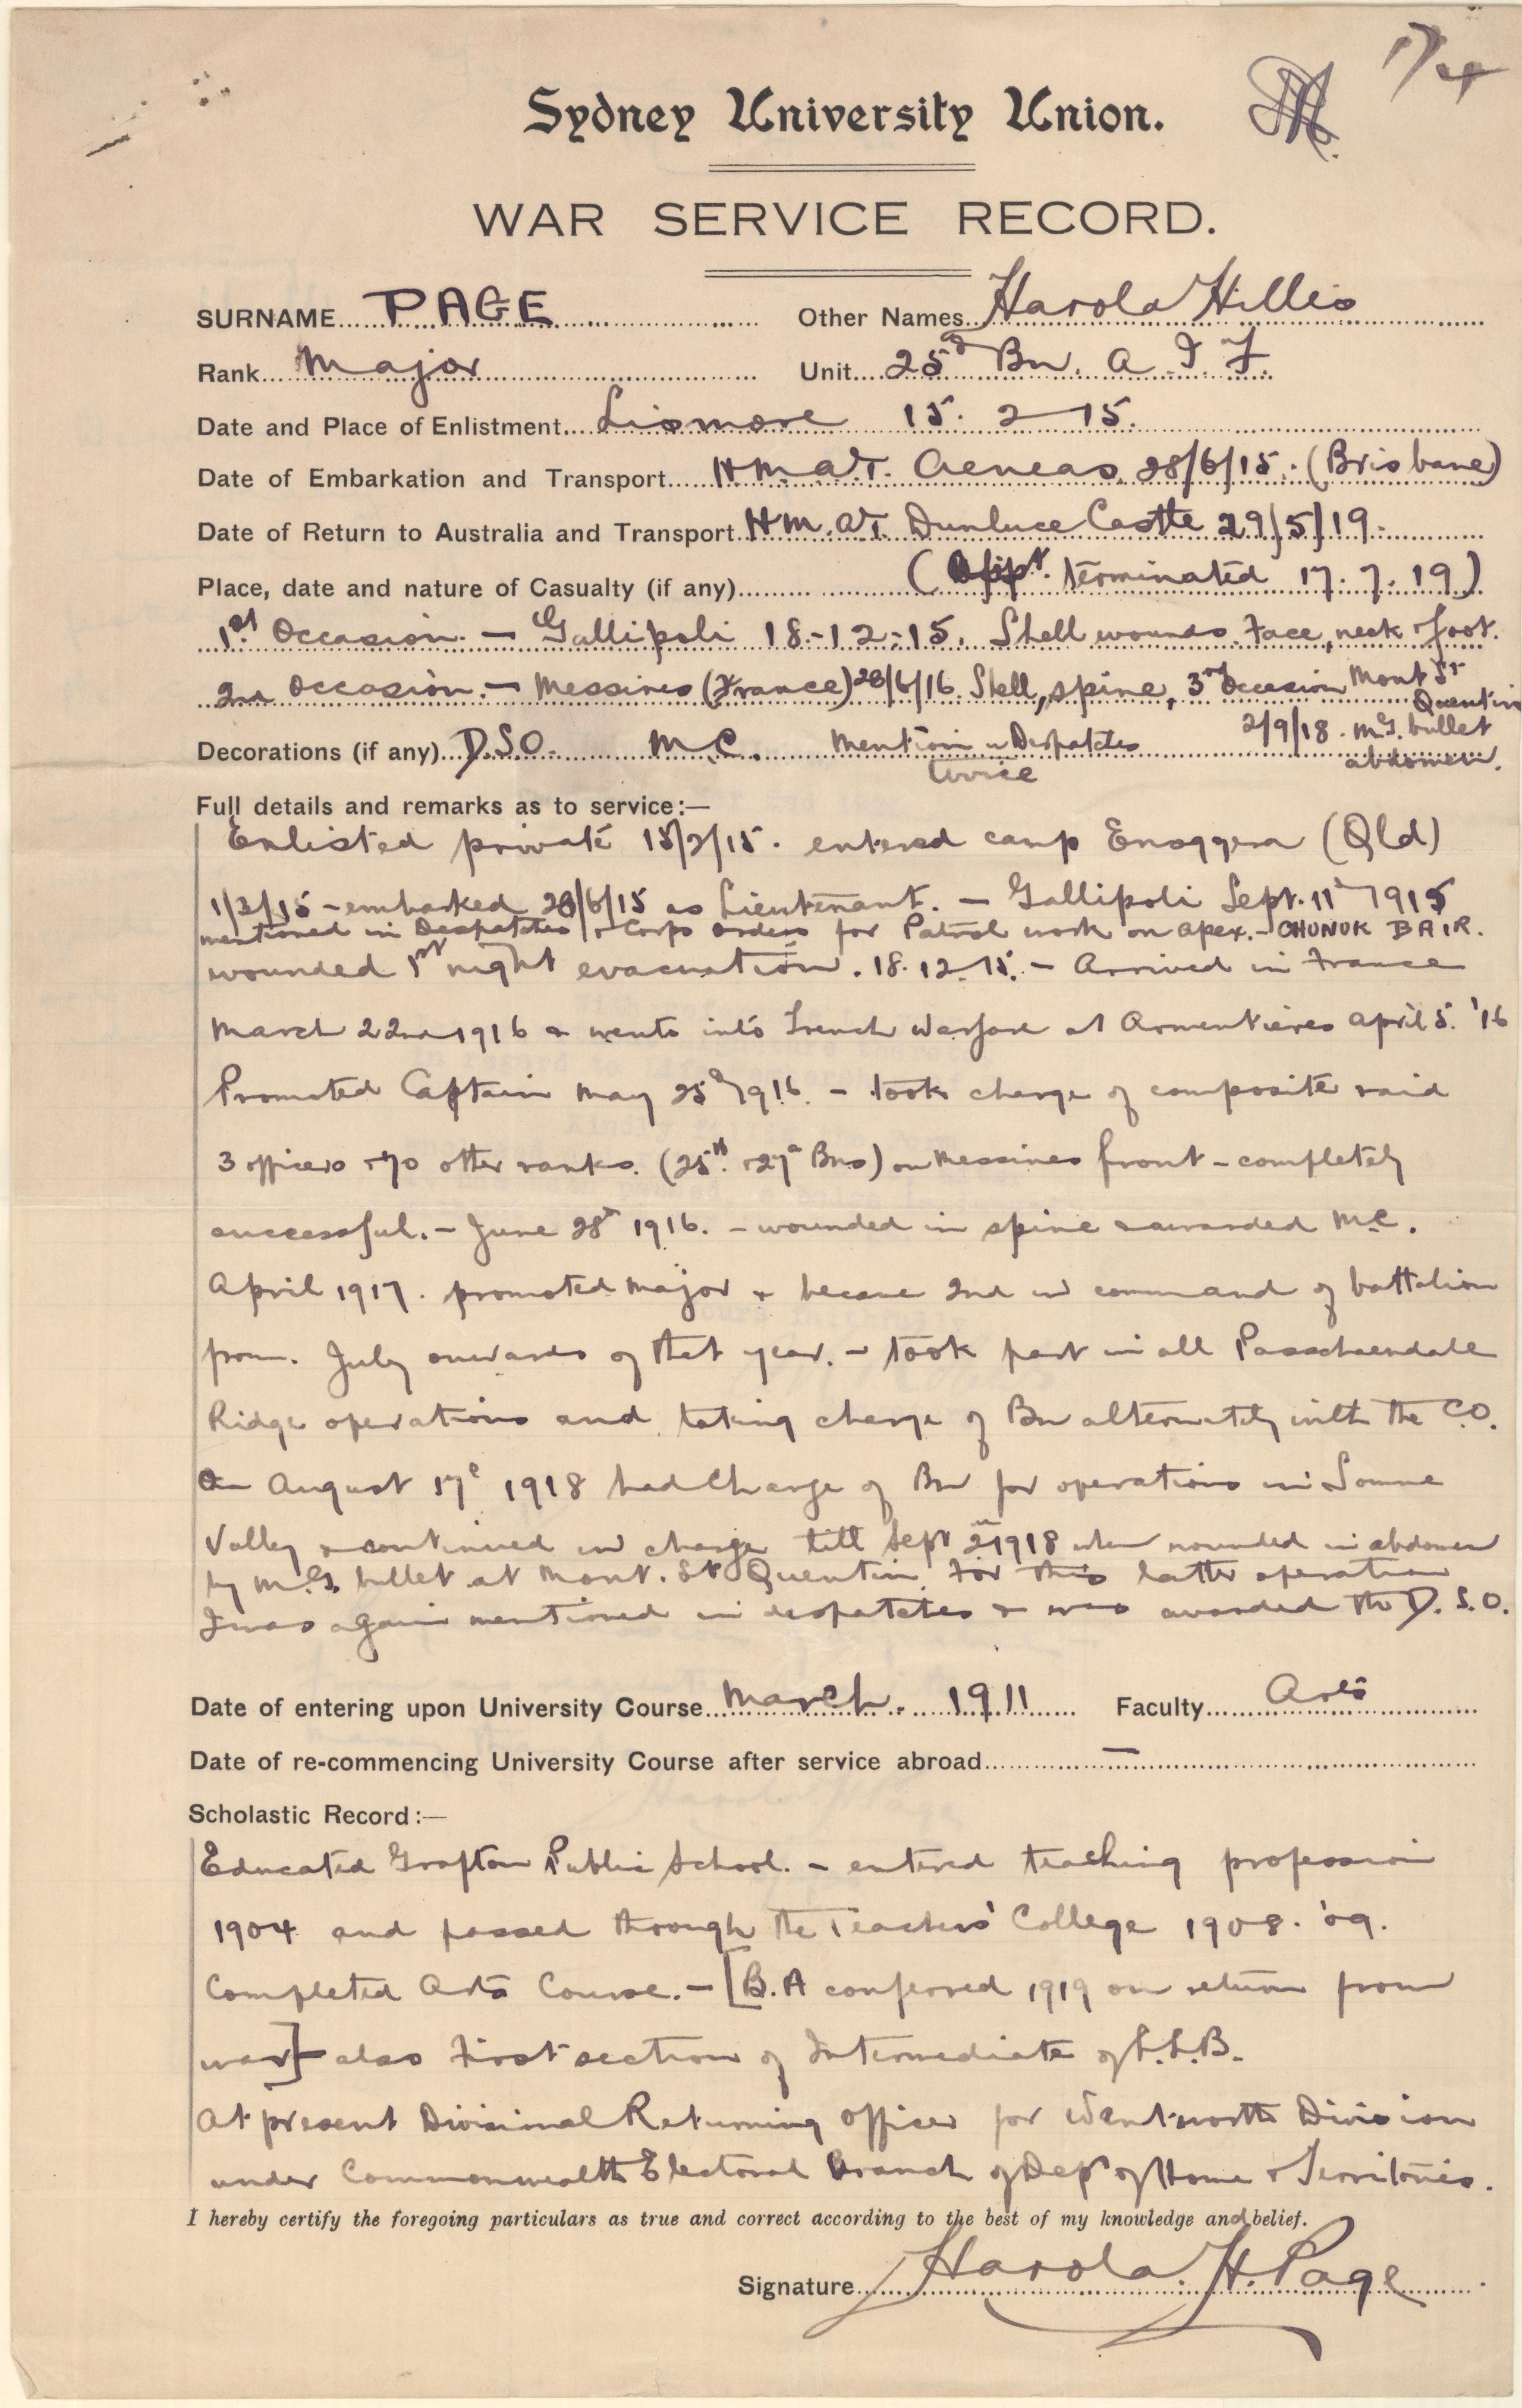 17/4
Sydney University Union.
WAR SERVICE RECORD.
SURNAME PAGE Other Names Harold Hillis
Rank Major Unit 25th Bn. A.I.F.
Date and Place of Enlistment Lismore 15. 2. 15.
Date of Embarkation and Transport H.M.A.T. Aeneas 28/6/15. (Brisbane)
Date of Return to Australia and Transport H.M.A.T. Dunluce Castle 29/5/19.
Place, date and nature of Casualty (if any) (Appt. terminated 17.7.19)
1st Occasion. — Gallipoli 18-12-15. Shell wounds. Face, neck & foot.
2nd Occasion. — Messines (France) 28/6/16. Shell, spine, 3rd Occasion Mont St Quentin
2/9/18. M.G. bullet
abdomen.
Decorations (if any) D.S.O. M.C. Mention in Despatches
twice
Full details and remarks as to service:—
Enlisted private 15/2/15. entered camp Enoggera (Qld)
1/3/15 - embarked 28/6/15 as Lieutenant. — Gallipoli Sept. 11th 1915
mentioned in Despatches & Corps Orders for Patrol work on apex. - CHUNUK BAIR.
wounded 1st night evacuation. 18.12.15. — Arrived in France
March 22nd 1916 & went into trench warfare at Armentieres April 5. '16
Promoted Captain May 25th 1916. - took charge of composite raid
3 officers & 70 other ranks. (25th & 27th Bns) on Messines front - completely
successful. - June 28th 1916. - wounded in spine & awarded M.C.
April 1917. promoted Major & became 2nd in command of battalion
from July onwards of that year. - took part in all Passchaendale
Ridge operations and taking charge of Bn alternately with the C.O.
On August 17th 1918 had Charge of Bn for operations in Somme
Valley & continued in charge till Sept 2nd 1918 when wounded in abdomen
by M.G. bullet at Mont. St Quentin. For this latter operation
I was again mentioned in despatches & was awarded the D.S.O.
Date of entering upon University Course March. 1911 Faculty Arts
Date of re-commencing University Course after service abroad —
Scholastic Record:—
Educated Grafton Public School. - entered teaching profession
1904 and passed through the Teachers' College 1908. '09.
Completed Arts Course. - [B.A conferred 1919 on return from
war] - also First section of Intermediate of L.L.B.
At present Divisional Returning Officer for Wentworth Division
under Commonwealth Electoral Branch of Dept of Home & Territories.
I hereby certify the foregoing particulars as true and correct according to the best of my knowledge and belief.
Signature Harold. H. Page